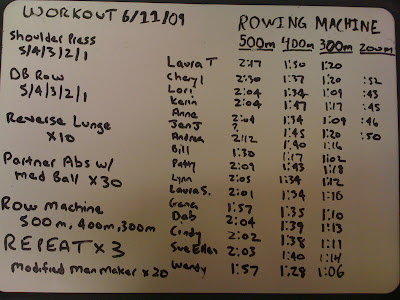 WORKOUT 6/11/09
Shoulder Press
5/4/3/2/1
DB Row
5/4/3/2/1
Reverse Lunge
x10
Partner Abs w/
med Ball x30
Row Machine
500m, 400m, 300m
REPEAT x3
Modified Man Maker x20
ROWING MACHINE
500m 400m 300m 200m
Laura T 2:17 1:50 1:20
Cheryl 2:30 1:37 1:20 :52
Lori 2:04 1:34 1:09 :43
Kerin 2:04 1:47 1:17 :45
Anne 2:04 1:34 1:09 :46
Jen J ? 1:45 1:20 :50
Andrea 2:12 1:40 1:16
Bill 1:30 1:17 1:02
Patty 2:09 1:43 1:18
Lynn 2:05 1:34 1:12
Laura S. 2:01 1:34 1:16
Gena 1:57 1:35 1:10
Deb 2:04 1:39 1:13
Cindy 2:02 1:38 1:11
Sue Ellen 2:03 1:40 1:14
Wendy 1:57 1:28 1:06